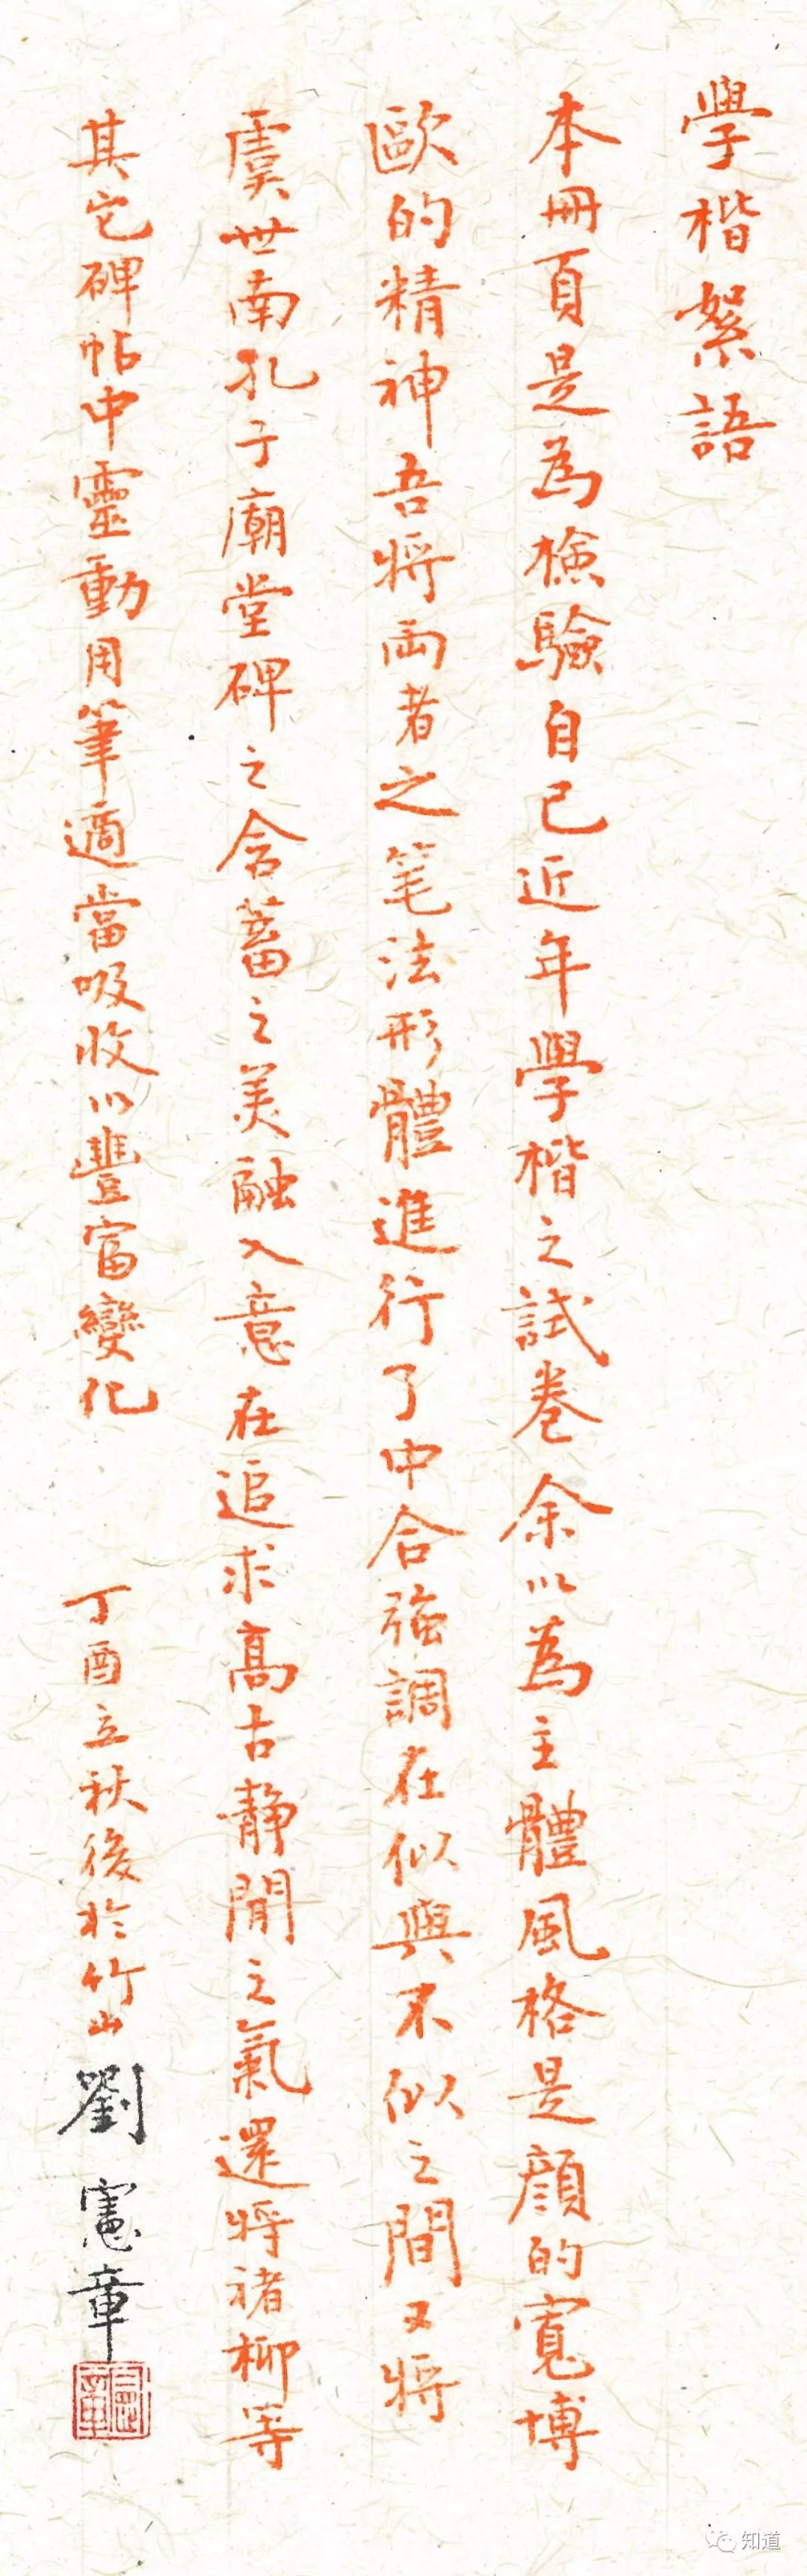 學楷絮語
本冊頁是為檢驗自己近年學楷之試卷余以為主體風格是顔的寬博
歐的精神吾將兩者之笔法形體進行了中合強調在似與不似之間又將
虞世南孔子廟堂碑之含蓄之美融入意在追求高古静閒之氣還將褚柳等
其它碑帖中靈動用筆適當吸收以豐富變化
丁酉立秋後於竹山
劉憲章
憲章
知道